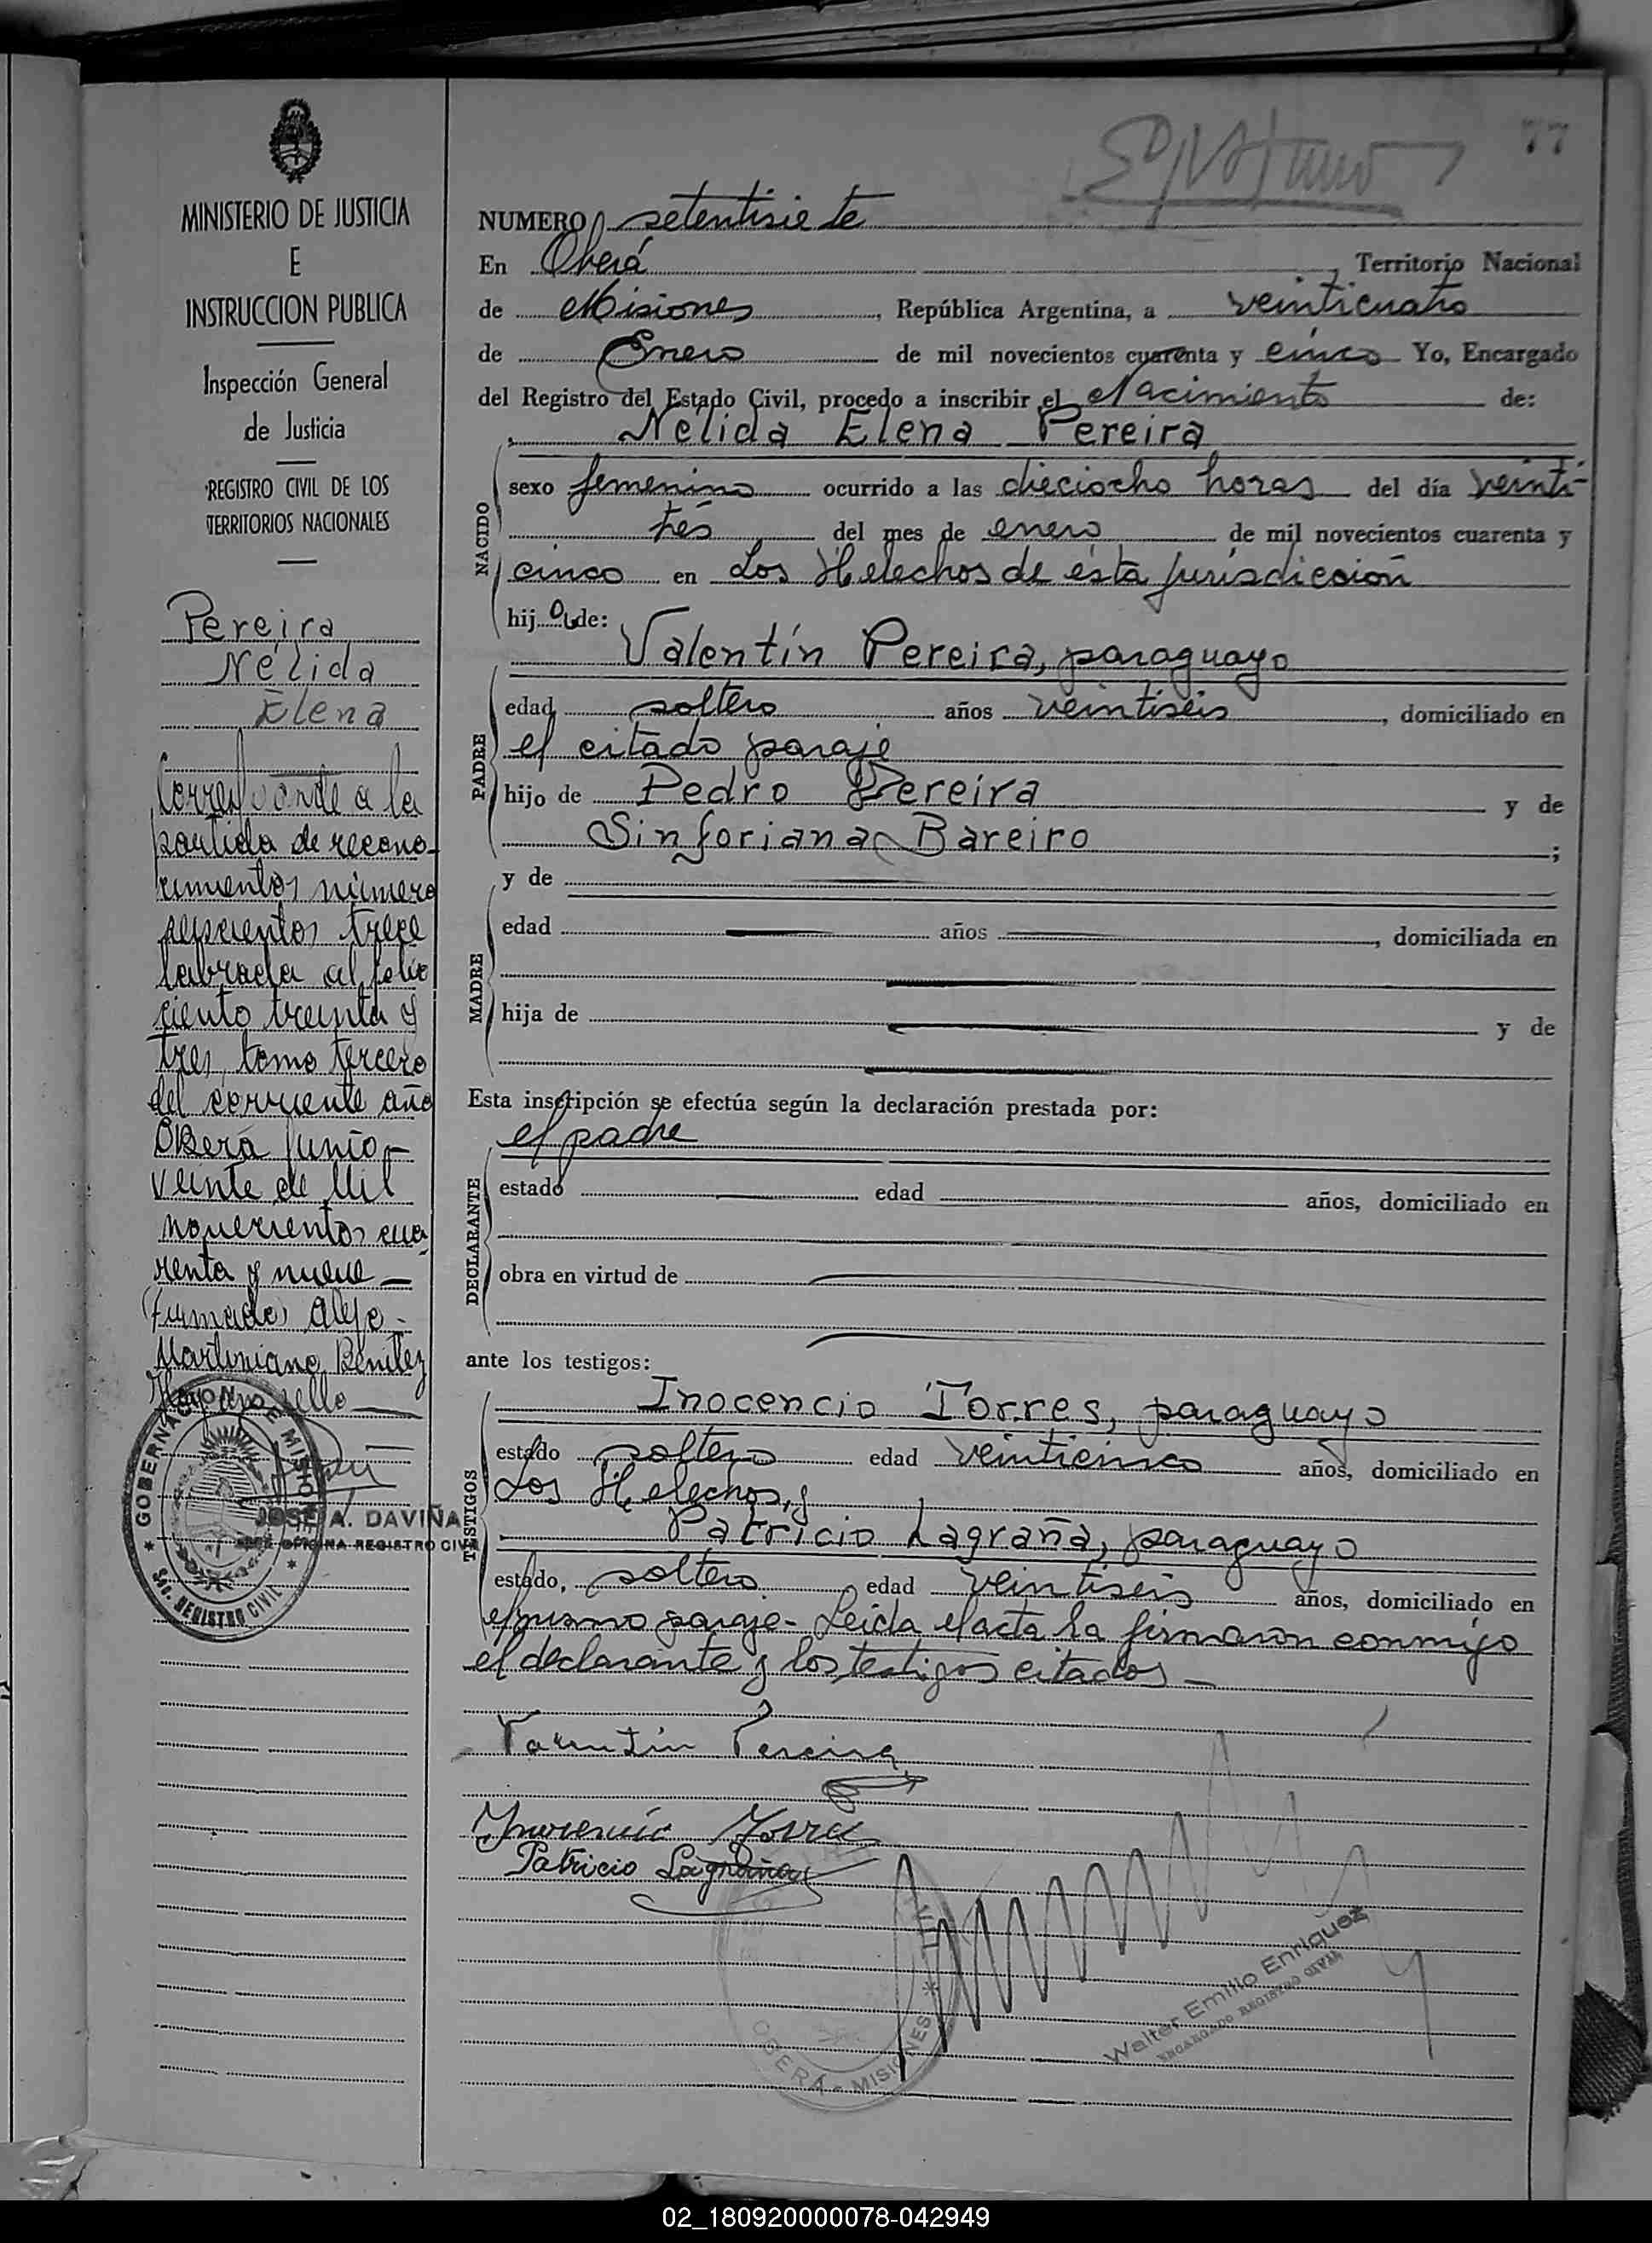 77
MINISTERIO DE JUSTICIA
E
INSTRUCCION PUBLICA
Inspección General
de Justicia
REGISTRO CIVIL DE LOS
TERRITORIOS NACIONALES
Pereira
Nélida
Elena
Corresponde a la
partida de recono-
cimientos número
seiscientos trece
labrada al folio
ciento treinta y
tres, tomo tercero
del corriente año
Oberá Junio
veinte de Mil
novecientos cua
renta y nueve —
(Firmado) Alejo -
Martiniano Benitez
Hay un sello —
GOBERNACION DE MISIONES
REGISTRO CIVIL
JOSE A. DAVIÑA
JEFE OFICINA REGISTRO CIVIL
NUMERO setentisiete
En Oberá, Territorio Nacional
de Misiones, República Argentina, a veinticuatro
de Enero de mil novecientos cuarenta y cinco Yo, Encargado
del Registro del Estado Civil, procedo a inscribir el Nacimiento de:
Nélida Elena Pereira
NACIDO
sexo femenino ocurrido a las dieciocho horas del día veinti-
trés del mes de enero de mil novecientos cuarenta y
cinco en Los Helechos de ésta jurisdicción
hija de:
Valentín Pereira, paraguayo
PADRE
edad soltero años veintiseis, domiciliado en
el citado paraje
hijo de Pedro Pereira y de
Sinforiana Bareiro ;
y de
MADRE
edad años , domiciliada en
hija de y de
Esta inscripción se efectúa según la declaración prestada por:
el padre
DECLARANTE
estado edad años, domiciliado en
obra en virtud de
ante los testigos:
TESTIGOS
Inocencio Torres, paraguayo
estado soltero edad veinticinco años, domiciliado en
Los Helechos, y
Patricio Lagraña, paraguayo
estado, soltero edad veintiseis años, domiciliado en
el mismo paraje - Leída el acta la firmaron conmigo
el declarante y los testigos citados —
Valentín Pereira
Inocencio Torres
Patricio Lagraña
OBERA - MISIONES
Walter Emilio Enriquez
ENCARGADO REGISTRO CIVIL
02_180920000078-042949